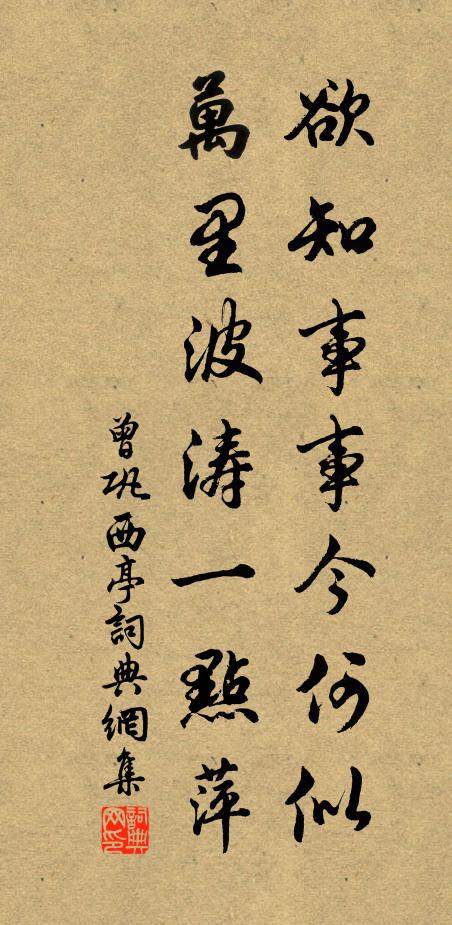 欲知事事今何似
萬里波涛一點萍
曾巩西亭詞典網集
詞典网印